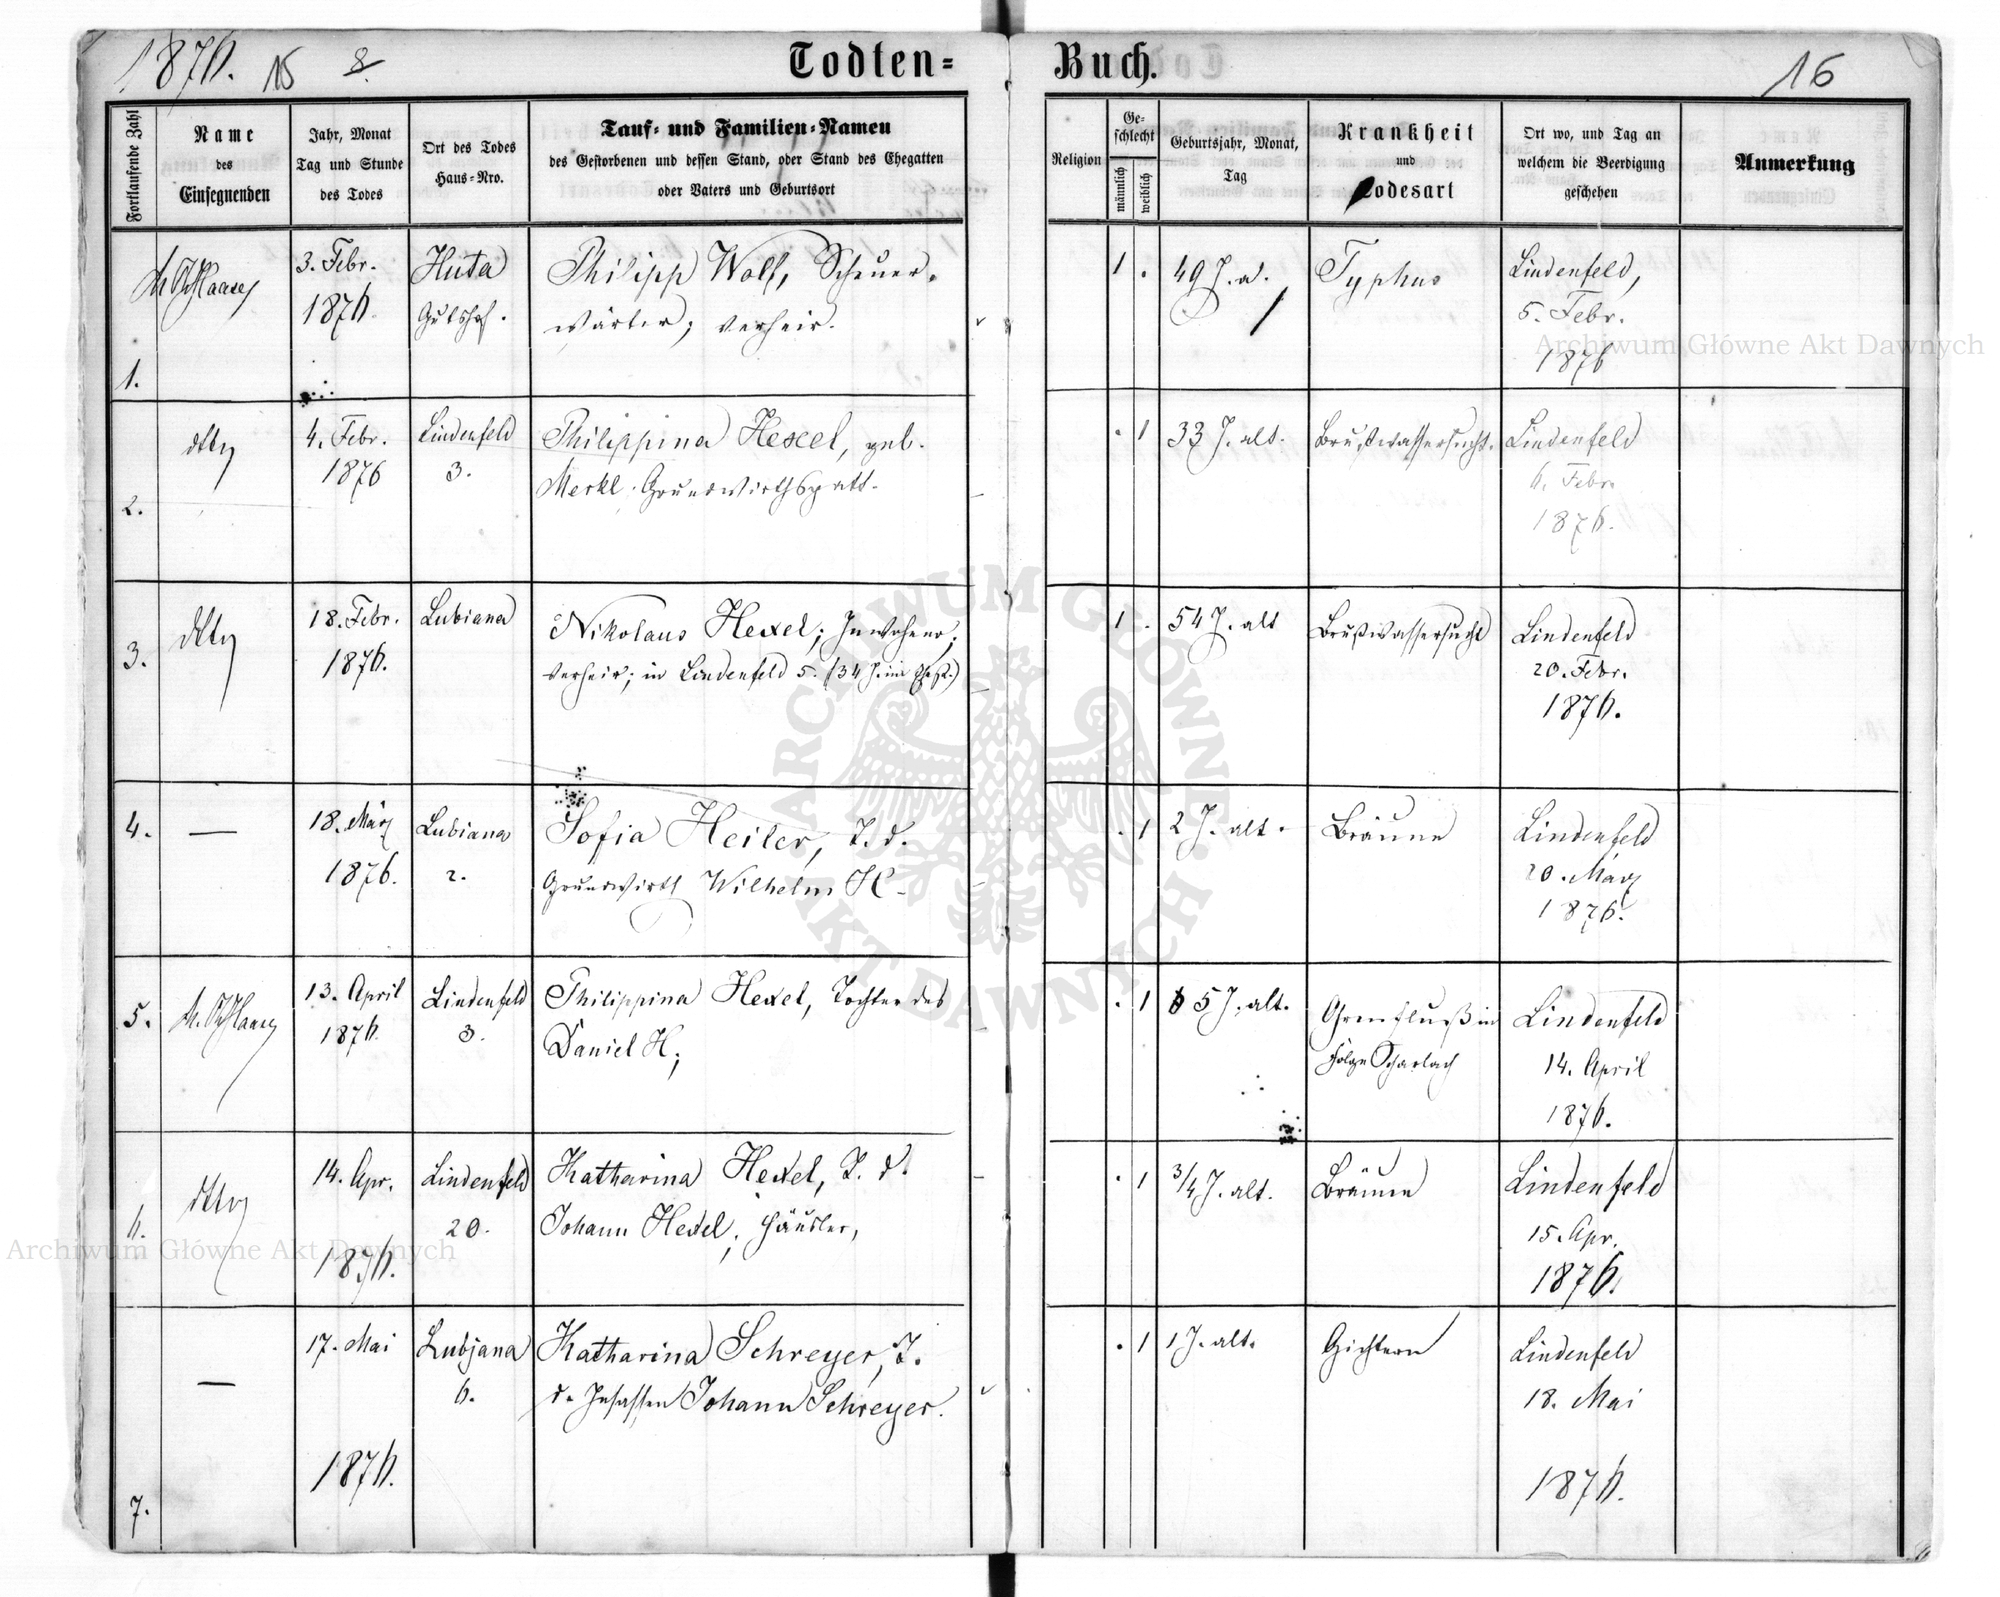 1876. 15 8.
Todten-Buch.
16
Fortlaufende Zahl
Name
des
Einsegnenden
Jahr, Monat
Tag und Stunde
des Todes
Ort des Todes
Haus-Nro.
Tauf- und Familien-Namen
des Gestorbenen und dessen Stand, oder Stand des Ehegatten
oder Vaters und Geburtsort
Religion
Ge-
schlecht
männlich
weiblich
Geburtsjahr, Monat,
Tag
Krankheit
und
Todesart
Ort wo, und Tag an
welchem die Beerdigung
geschehen
Anmerkung
1.
3. Febr.
1876.
Huta
Gutshof.
Philipp Wolf, Scheuer-
wärter; verheir.
1 .
49 J. a.
Typhus
Lindenfeld,
5. Febr.
1876
2.
dtto
4. Febr.
1876
Lindenfeld
3.
Philippina Hexel, geb.
Merkl. Grundwirthsgatt.
. 1
33 J. alt.
Brustwassersucht.
Lindenfeld
6. Febr.
1876.
3.
dtto
18. Febr.
1876.
Lubiana
Nikolaus Hexel; Inwohner;
verheir; in Lindenfeld 5. (34 J. im Ehest.)
1 .
54 J. alt
Brustwassersucht
Lindenfeld
20. Febr.
1876.
4.
—
18. März
1876.
Lubiana
2.
Sofia Heiler, T. d.
Grundwirth Wilhelm H.
. 1
2 J. alt.
Bräune
Lindenfeld
20. März
1876.
5.
13. April
1876.
Lindenfeld
3.
Philippina Hexel, Tochter des
Daniel H;
. 1
5 J. alt.
Ohrenfluß in
Folge Scharlach
Lindenfeld
14. April
1876.
6.
dtto
14. Apr.
1876.
Lindenfeld
20.
Katharina Hexel, T. d.
Johann Hexel; Häusler,
. 1
3/4 J. alt.
Bräune
Lindenfeld
15. Apr.
1876.
7.
—
17. Mai
1876.
Lubjana
6.
Katharina Schreyer, T.
d. Insassen Johann Schreyer.
. 1
1 J. alt.
Gichtern
Lindenfeld
18. Mai
1876.
Archiwum Główne Akt Dawnych
ARCHIWUM GŁÓWNE AKT DAWNYCH
Archiwum Główne Akt Dawnych